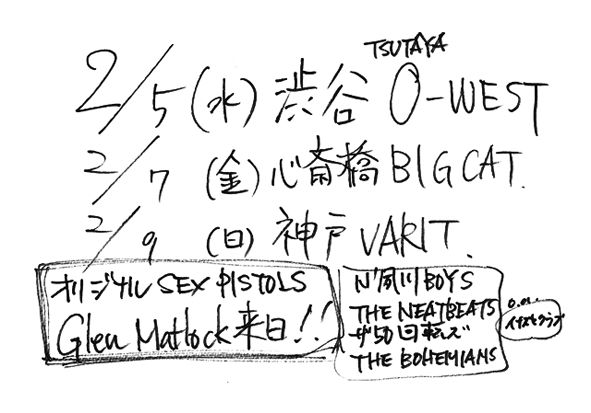 TSUTAYA
2/5(水)渋谷 O-WEST
2/7 (金)心斎橋BIGCAT.
2/9 (日)神戸VARIT.
オリジナル SEX PISTOLS
Glen Matlock来日!!
N'夙川BOYS
THE NEATBEATS
ザ50回転ズ
THE BOHEMIANS
o.a.